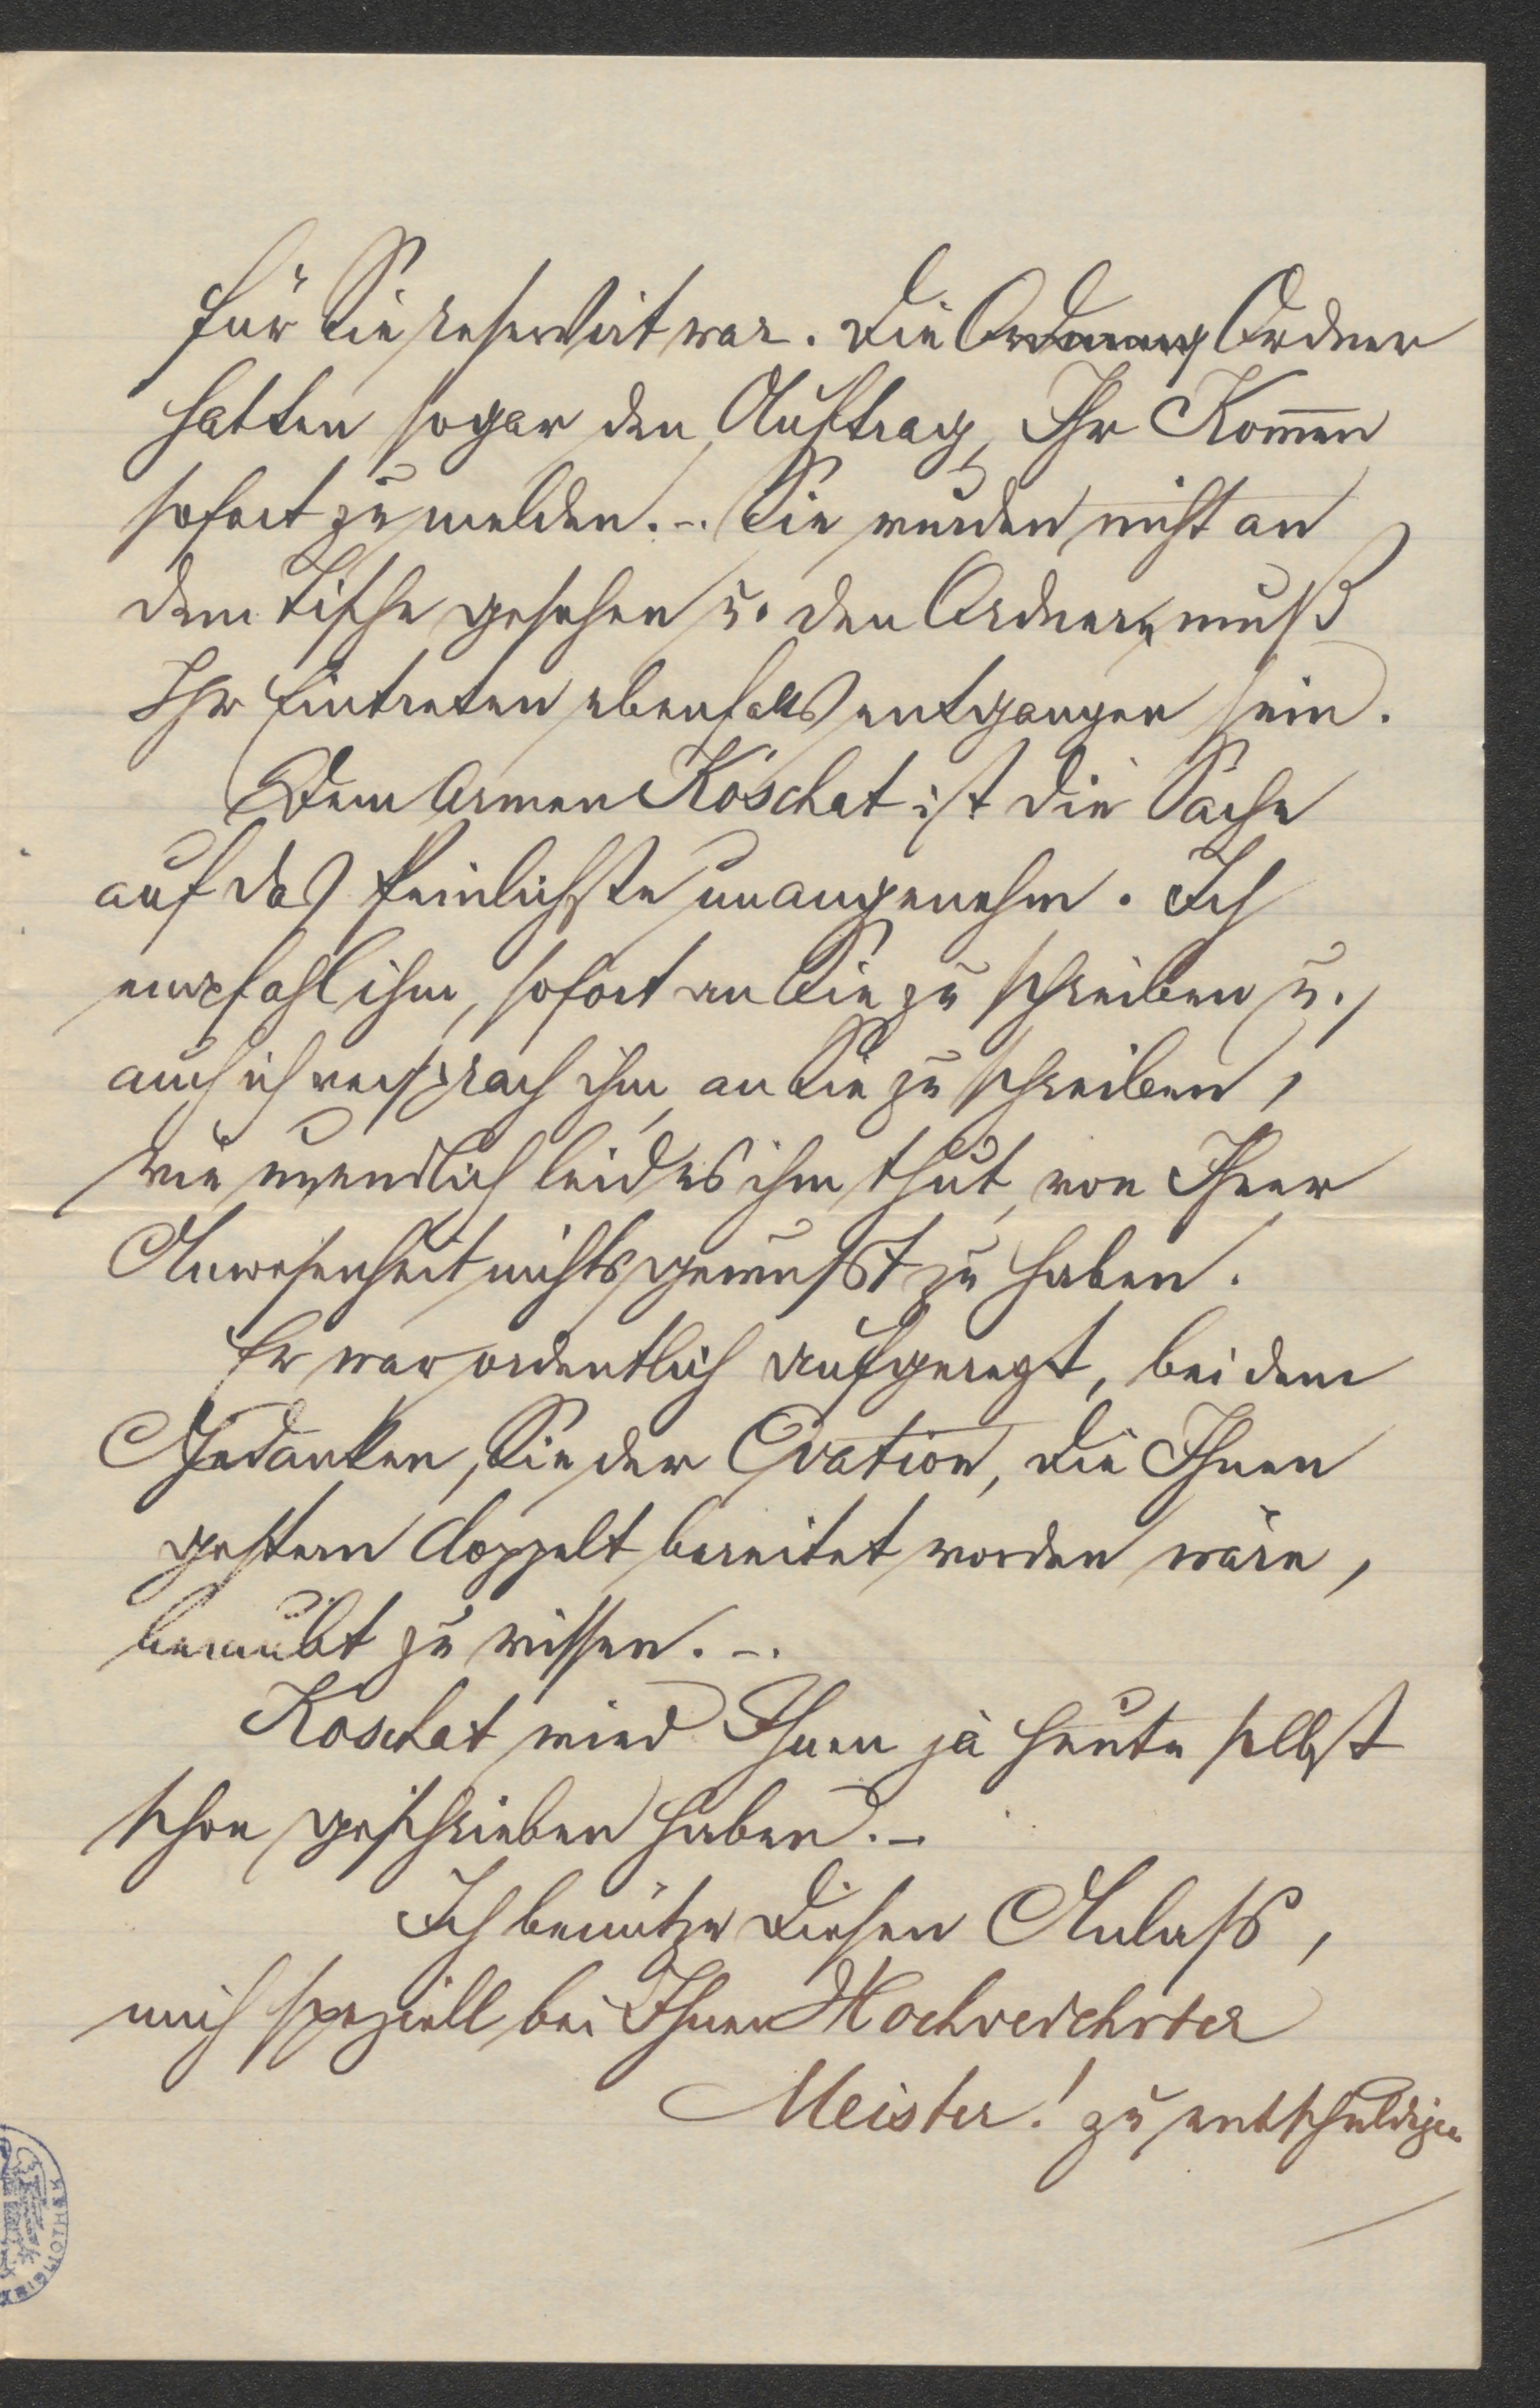 für Sie reservirt war. Die Ordnung Ordner
hatten sogar den Auftrag, Ihr Kom̄en
sofort zu melden. –. Sie wurden nicht an
dem Tische gesehen u. den Ordnern muß
Ihr Eintreten ebenfalls entgangen sein.
Dem Armen Koschat ist die Sache
auf das Peinlichste unangenehm. Ich
empfahl ihm, sofort an Sie zu schreiben u.
auch ich versprach ihm, an Sie zu schreiben,
wie unendlich leid es ihm thut, von Ihrer
Anwesenheit nichts gewußt zu haben.
Er war ordentlich aufgeregt, bei dem
Gedanken, Sie der Ovation, die Ihnen
gestern doppelt bereitet worden wäre,
beraubt zu wissen. –.
Koschat wird Ihnen ja heute selbst
schon geschrieben haben. –
Ich benütze diesen Anlaß,
mich speziell bei Ihnen Hochverehrter
Meister! zu entschuldigen